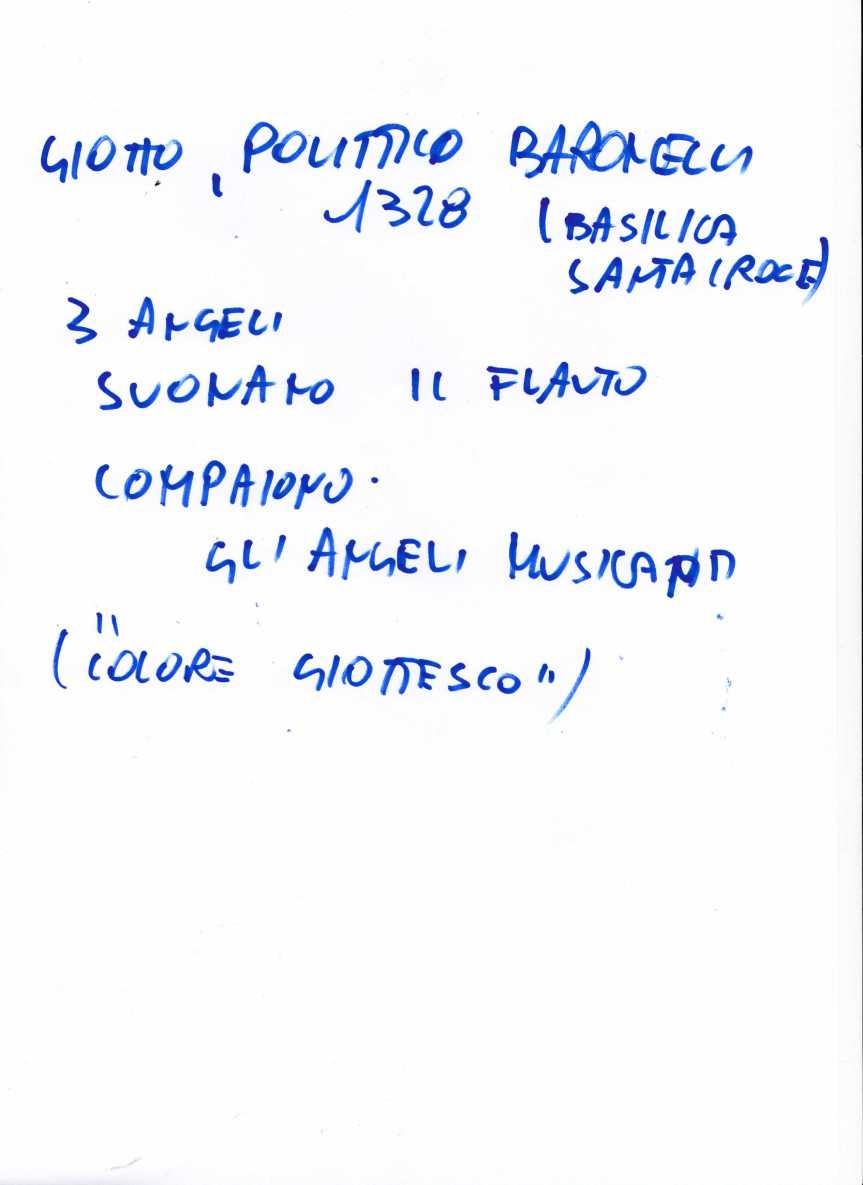 GIOTTO, POLITTICO BARONCELLI
1328 (BASILICA
SANTA CROCE)
3 ANGELI
SUONANO IL FLAUTO
COMPAIONO.
GLI ANGELI MUSICANTI
("COLORE GIOTTESCO")